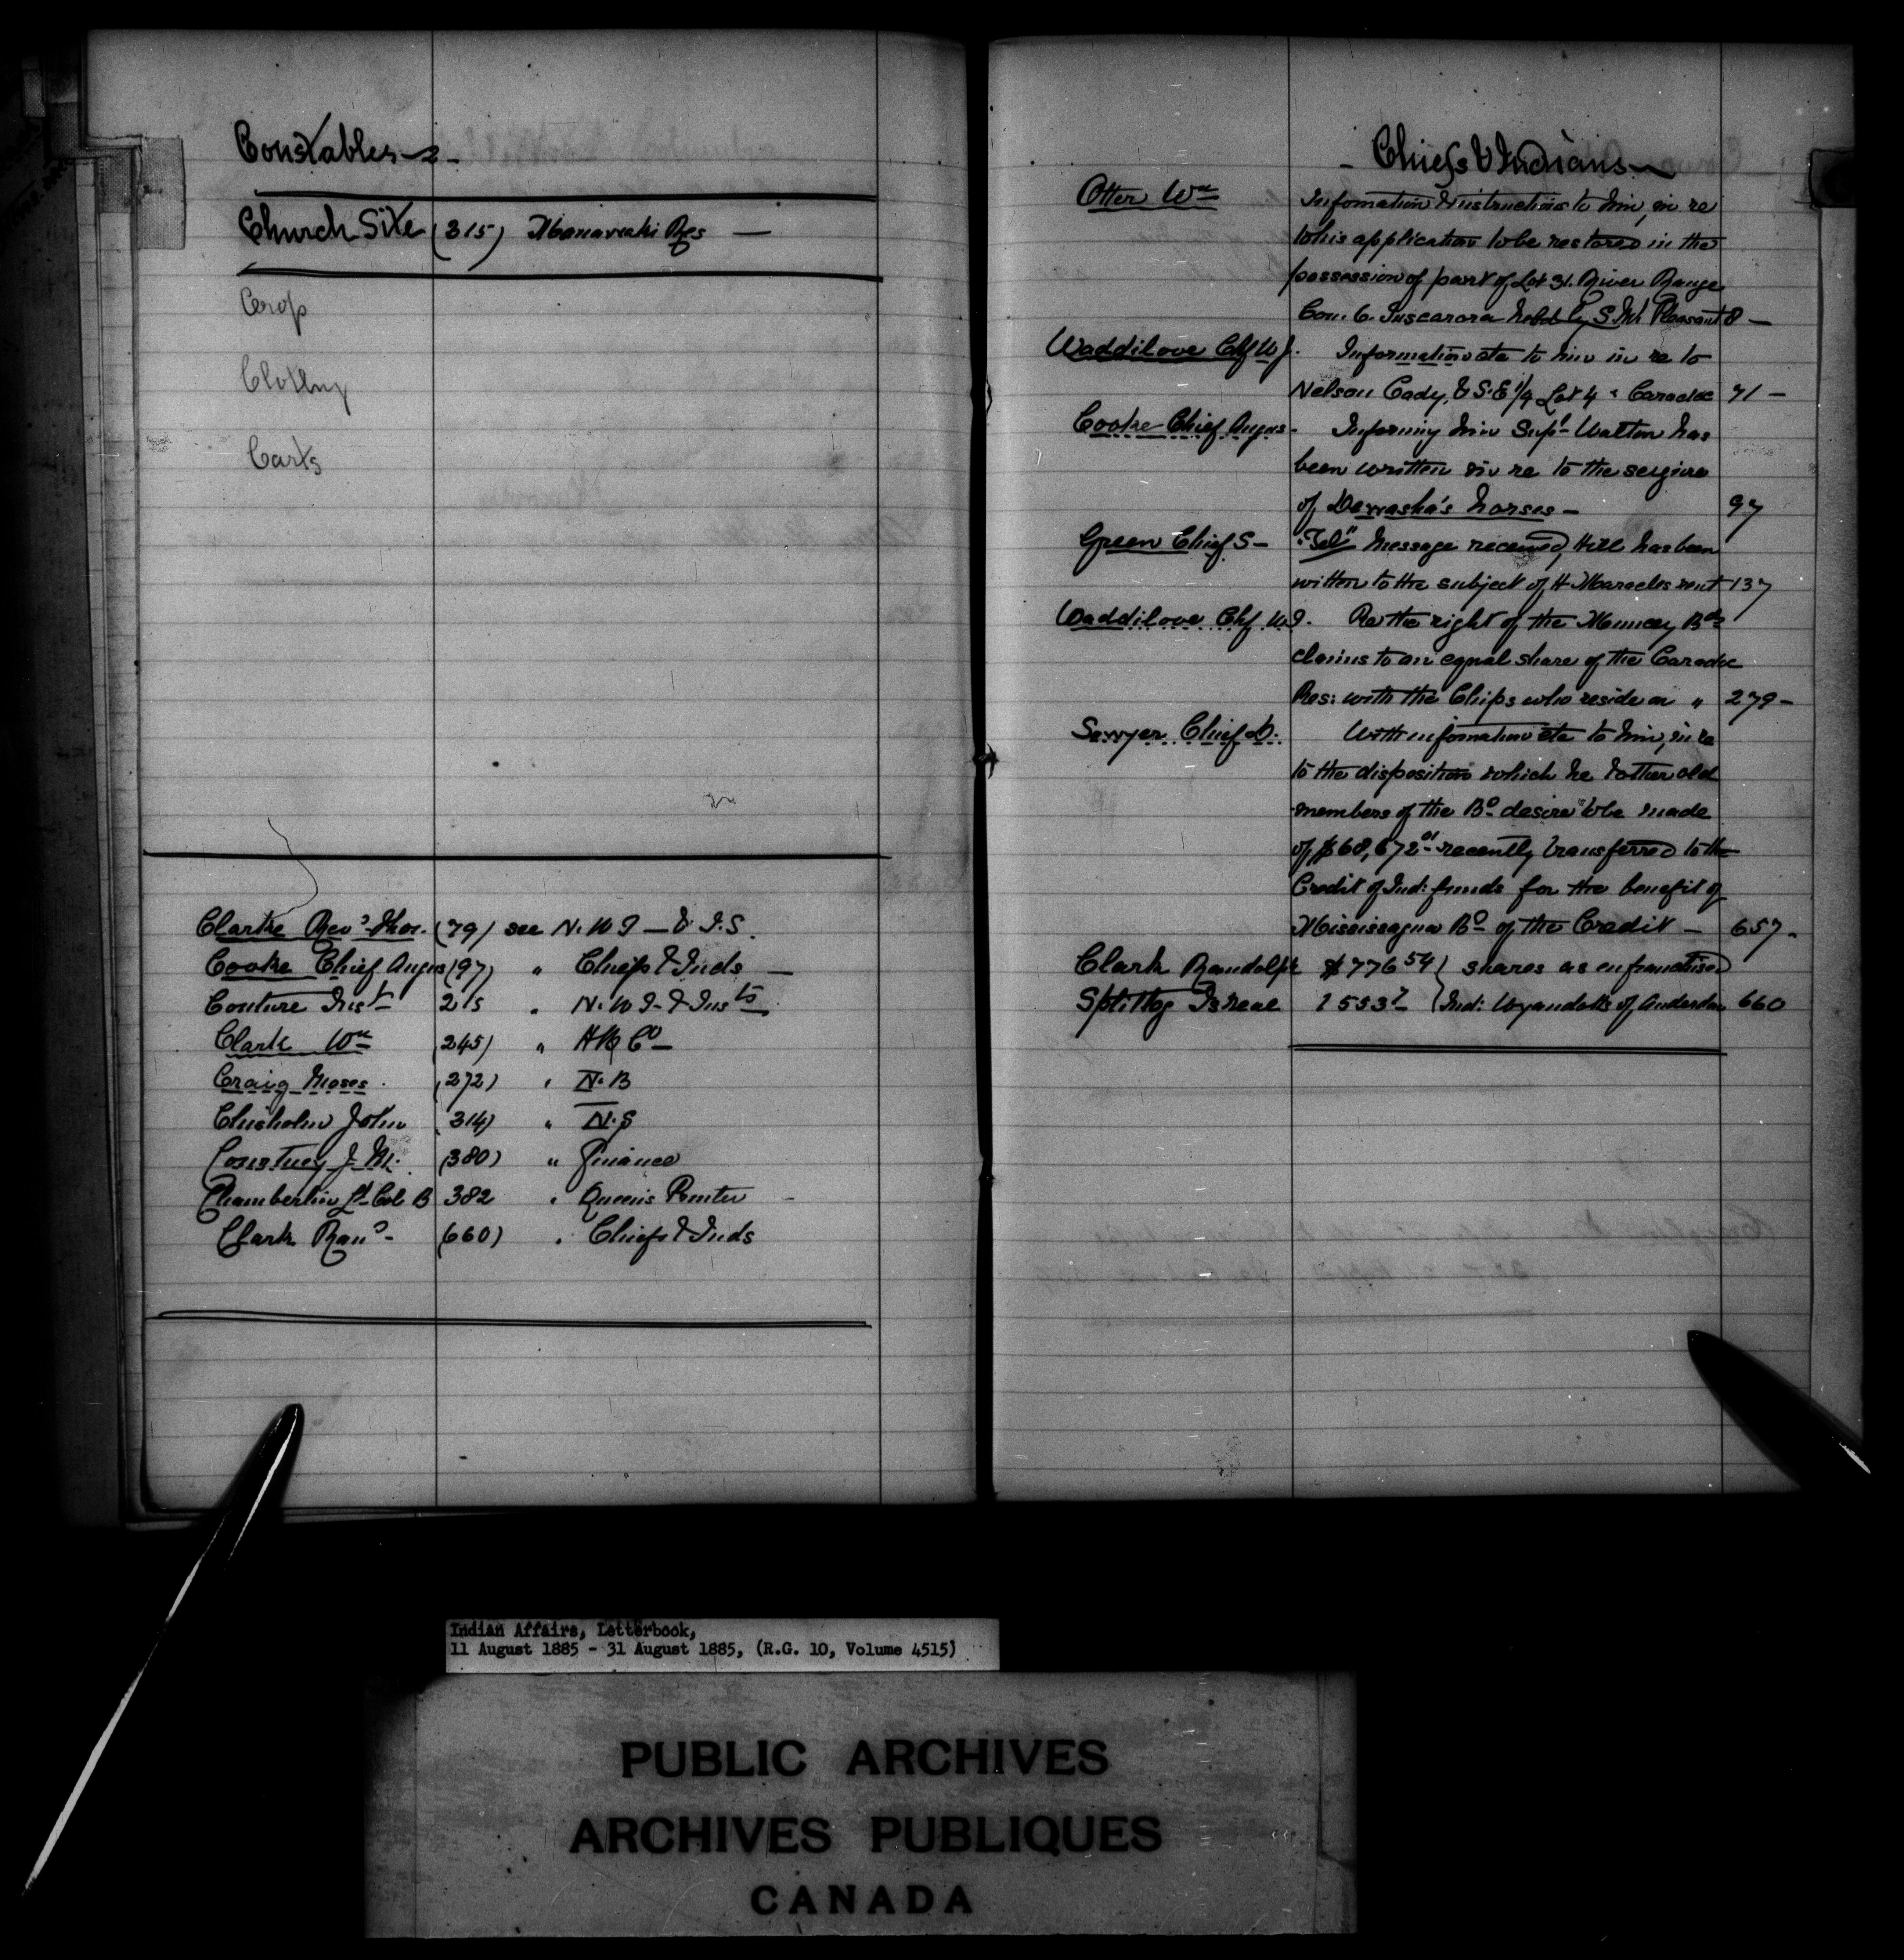 Constables
Church Site (315) Manawaki Res —
Crop
Clothing
Carts
Clarke Revd Thos. (79) see N.W.T — & I.S.
Cooke Chief Angus (97) " Chiefs & Inds —
Couture Inst 215 " N.W.T & Insts
Clark Wm (245) " H B Co —
Craig Moses (272) " N.B
Chisholm John 314) " N.S
Courtney J. M. (380) " Finance
Chamberlin Lt Col B 382 " Queens Printer —
Clark Ran (660) " Chiefs & Inds
- Chiefs & Indians
Otter Wm Infomation & instructions to him, in re
to his application to be restored in the
possession of part of Lot 31. River Range
Con. 6. Tuscarora held by S. Mt Pleasant 8 —
Waddilove Chf W J. Information etc to him in re to
Nelson Cady, & S.E 1/4 Lot 4 Caradoc 71 —
Cooke Chief Angus - Informing him Supt Walton has
been written in re to the seizure
of Dewasha's horses — 97
Green Chief S — "Tel" Message received, Hill has been
witten to the subject of H Maracles rent 137
Waddilove Chf W J. Re the right of the Muncey Bds
claims to an equal share of the Caradoc
Res: with the Chips who reside on " 279 —
Sawyer Chief D. With infomation etc to him, in re
to the disposition which he & other old
members of the Bd desire to be made
of $68,672.01 recently transferred to the
Credit of Ind: funds for the benefit of
Mississagua Bd of the Credit — 657 -
Clark Randolph $776 54 } shares as enfranchised
Splitlog Isreal 1553 7 } Ind: Wyandotts of Anderdon 660
Indian Affairs, Letterbook,
11 August 1885 - 31 August 1885, (R.G. 10, Volume 4515)
PUBLIC ARCHIVES
ARCHIVES PUBLIQUES
CANADA